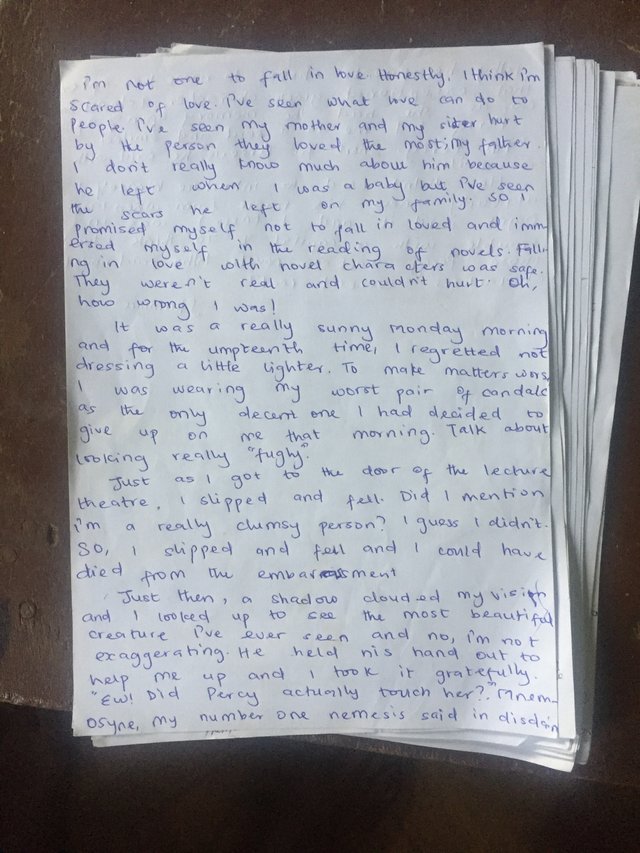 i'm not one to fall in love. Honestly, I think i'm
scared of love. I've seen what love can do to
people. I've seen my mother and my sister hurt
by the person they loved the most; my father.
I don't really know much about him because
he left when I was a baby but I've seen
the scars he left on my family. So I
promised myself not to fall in loved and imm-
ersed myself in the reading of novels. Fall-
ing in love with novel characters was safe.
They weren't real and couldn't hurt. Oh,
how wrong I was!
It was a really sunny Monday morning
and for the umpteenth time, I regretted not
dressing a little lighter. To make matters worse,
I was wearing my worst pair of candals
as the only decent one I had decided to
give up on me that morning. Talk about
looking really "fugly".
Just as I got to the door of the lecture
theatre, I slipped and fell. Did I mention
i'm a really clumsy person? I guess I didn't.
So, I slipped and fell and I could have
died from the embarassment
Just then, a shadow clouded my vision
and I looked up to see the most beautiful
creature I've ever seen and no, i'm not
exaggerating. He held his hand out to
help me up and I took it gratefully.
"Ew! Did Percy actually touch her?" Mnem-
osyne, my number one nemesis said in disdain